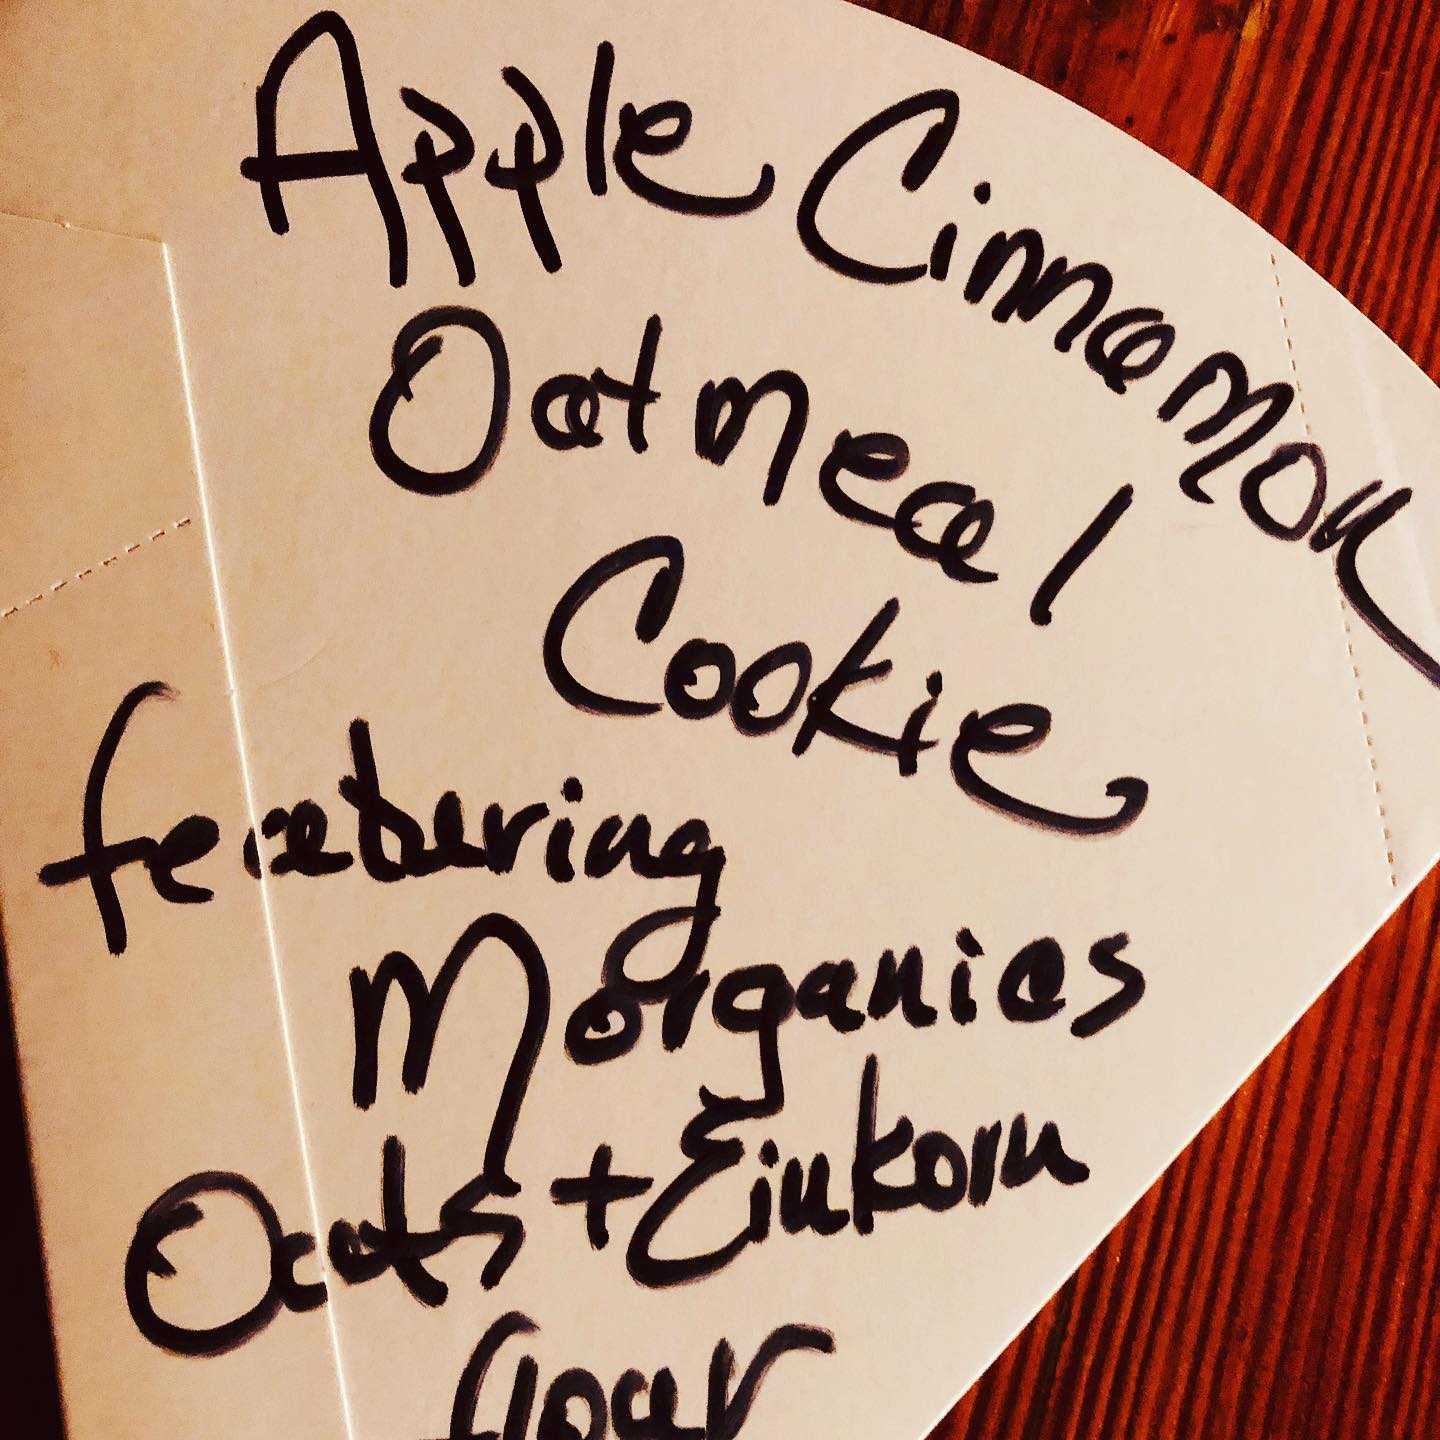 Apple Cinnamon
Oatmeal
Cookie
featuring
Morganics
Oats + Einkorn
flour